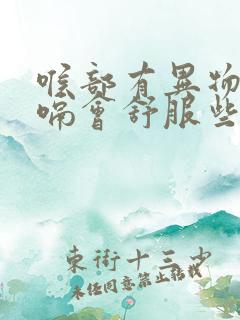 喉部有異物
嗝會舒服些
東街十三少
未经同意禁止转载